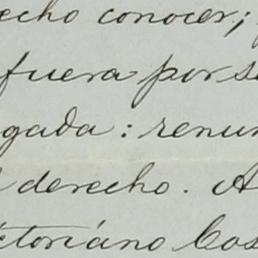 echo conocer;
fuera por se
gada: renun
derecho. A
ctoriano Cos